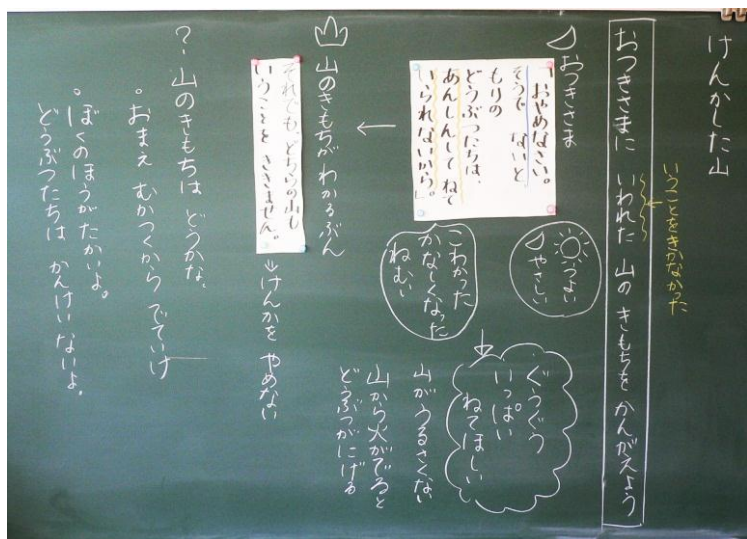 けんかした山
いうことをきかなかった
おつきさまに いわれた 山の きもちを かんがえよう
おつきさま
「おやめなさい。
そうで ないと
もりの
どうぶつたちは、
あんしんして ねて
いられないから。」
つよい
やさしい
こわかった
かなしくなった
ねむい
ぐうぐう
いっぱい
ねてほしい
山がうるさくない
山から火がでると
どうぶつがにげる
山のきもちが わかるぶん
それでも、どちらの山も
いうことを ききません。
⇒けんかを やめない
?・山のきもちは どうかな。
・おまえ むかつくから でていけ
・ぼくのほうがたかいよ。
どうぶつたちは かんけいないよ。